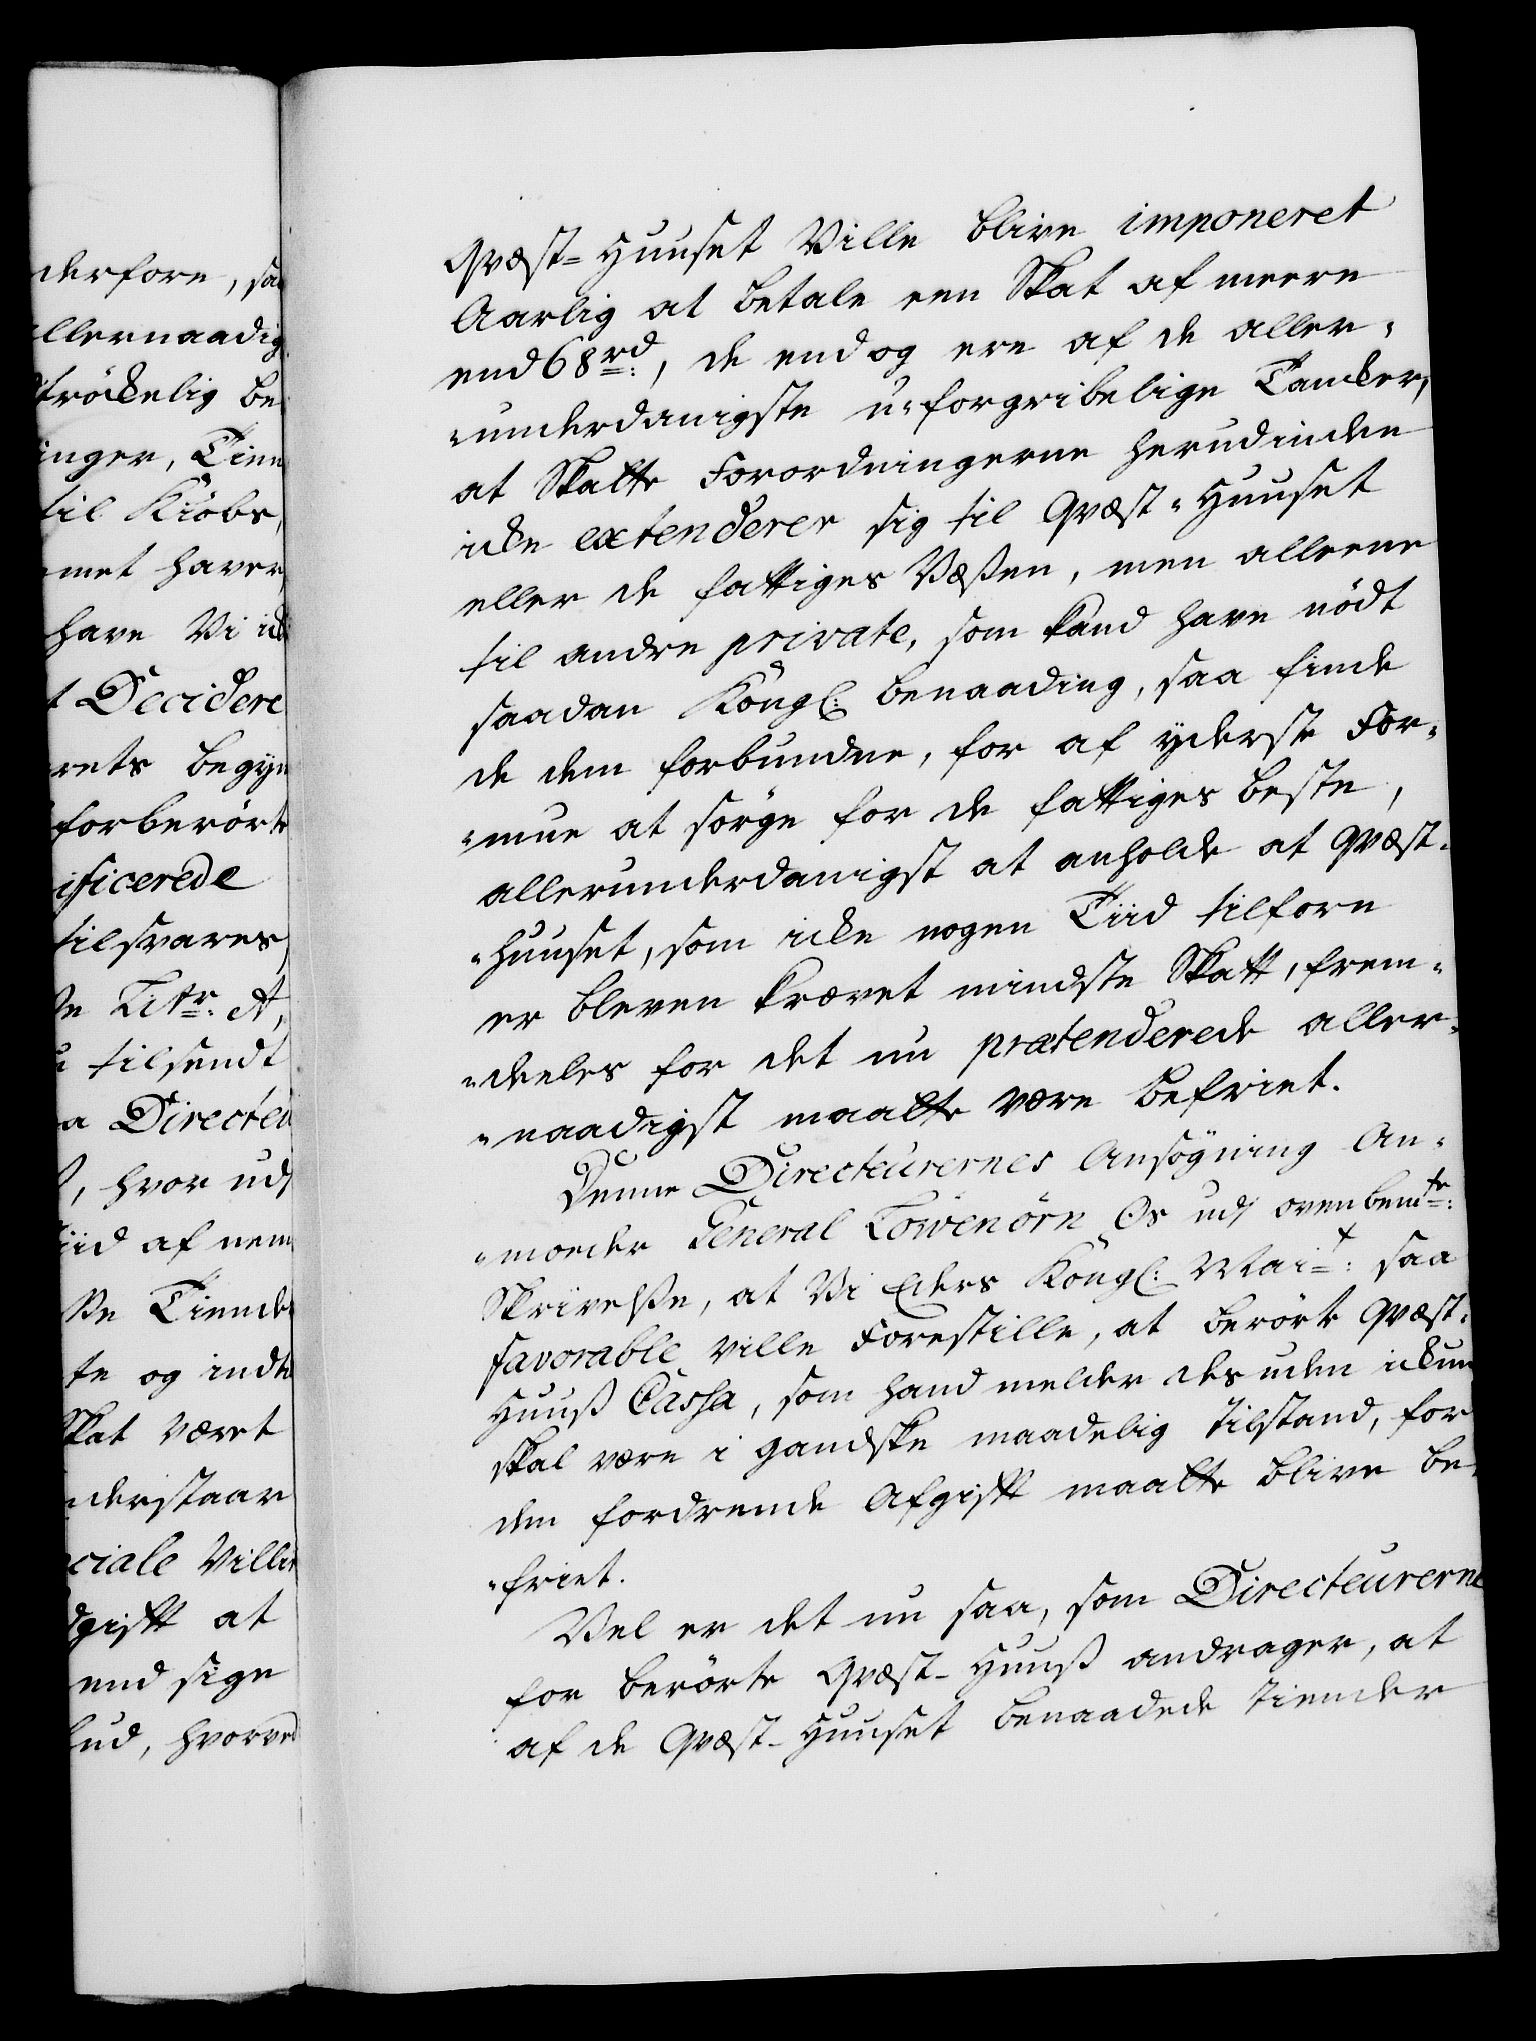 derfore, saa
llernaadig
trökelig be
inger, Tien
til Kiöbs,
met haver
have Vi ick
t Decidere
rets begyn
forberörte
ificerede
tilsvares
Litr: A,
tilsendt
a Directeu
, hvor udj
iid af nem
Tiende
te og indt
Skat været
nderstaar
ciale Villie
gifft at
end sige
lud, hvorved
Qvæst-Huuset Ville blive imponeret
Aarlig at betale een Skat af meere
end 68 rd:, de end og ere af de aller-
-underdanigste u-forgribelige Tancker,
at Skatte Forordningerne herudinden
icke extenderer sig til Qvæst-Huuset
eller de fattiges Væßen, men alleene
til andre private, som kand have nödt
saadan Kongl: benaading, saa finde
de dem forbundne, for af yderste For-
-mue at sörge for de fattiges beste,
allerunderdanigst at anholde at Qvæst-
-Huuset, som icke nogen Tiid tilforn
er bleven krævet mindste Skatt, frem-
-deeles for det nu prætenderede aller-
-naadigst maatte være befriet.
Denne Directeurernes Ansögning An-
-moder General Lövenörn Os udj ovenbemte:
Skrivelße, at Vi Eders Kongl: Mait: saa
favorable ville Forestille, at berörte Qvæst-
Huuß Cassa, som hand melder desuden ickun
skal være i gandske maadelig tilstand, for
den fordrende Afgifft maatte blive be-
-friet.
Vel er det nu saa, som Directeurerne
for berörte Qvæst-Huuß andrager, at
af de Qvæst-Huuset benaadede Tiender